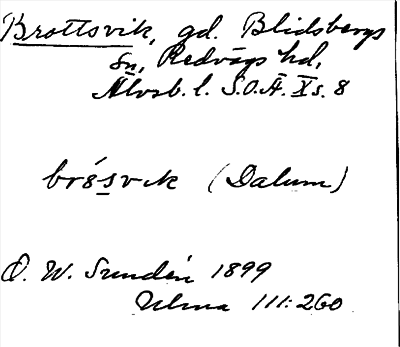 Brottsvik, gd. Blidsbergs
sn, Redvägs hd,
Älvsb. l. S.O.Ä. X s. 8
brósvik (Dalum)
O. W. Sundén 1899
Ulma 111:260